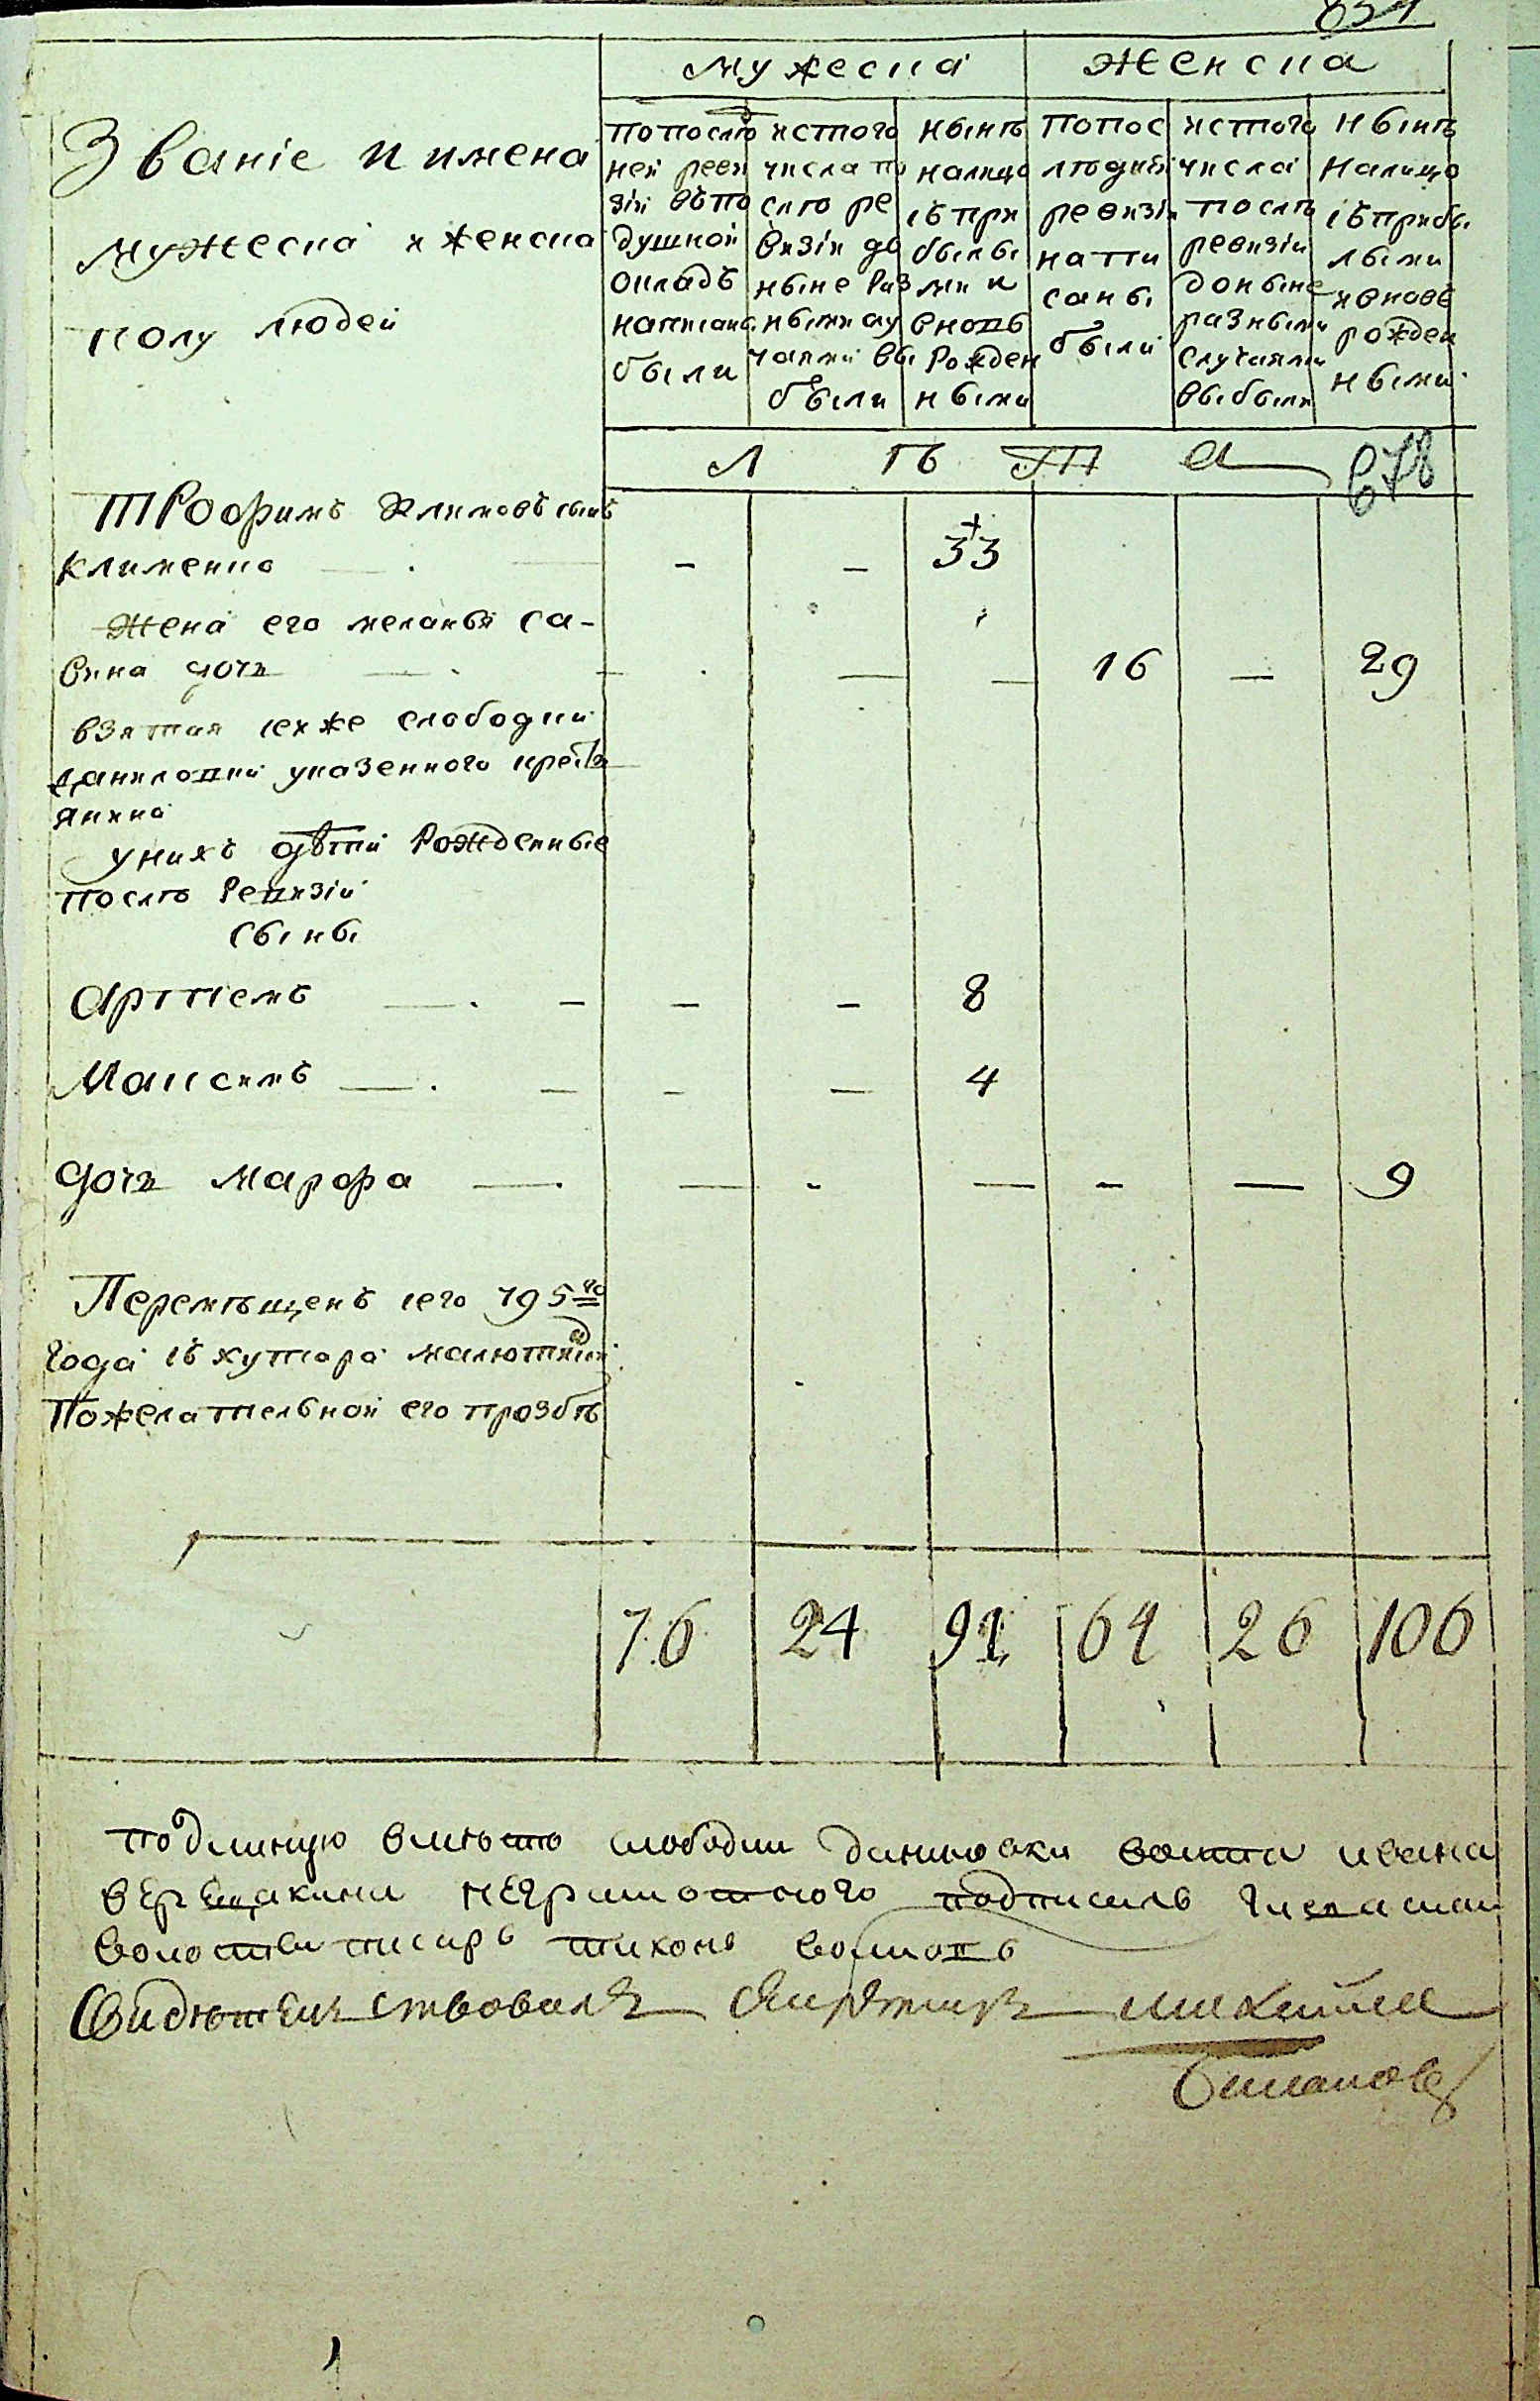 мужеска женска
Званіе и имена
мужеска и женска
полу людей
попослѣд
ней реви
зіи въпо
душной
окладъ
написаны
были
истого
числа по
слѣ ре
визіи до
ныне раз
ными слу
чаями вы
были
нынѣ
налицо
съпри
былы
ми и
вновь
рожден
ными
попос
лѣдней
ревизіи
напи
саны
были
истого
числа
послѣ
ревизіи
доныне
разными
случаями
выбыли
нынѣ
налицо
съприбы
лыми
ивновь
рожден
ными
л ѣ т а 678
Трофимъ Климовъ сынъ
клименко — . — - - 33
жена его меланья са-
вина дочь — . — — — 16 — 29
взятая сеи же слободки
даниловки указенного кресть
янина
унихъ дѣти рожденные
послѣ ревизіи
сыны
артіемъ — . - - - 8
Максимъ — . - - - 4
дочь марфа — . — - — - — 9
Перемѣщенъ сего 795го
года съ хутора
Пожелательной его прозбѣ
76 24 91 64 26 106
подлинную вмѣсто слободки даниловки воита ивана
верещакина неграмотного подписалъ
волости писарь тихонъ
Свидѣтельствовалъ